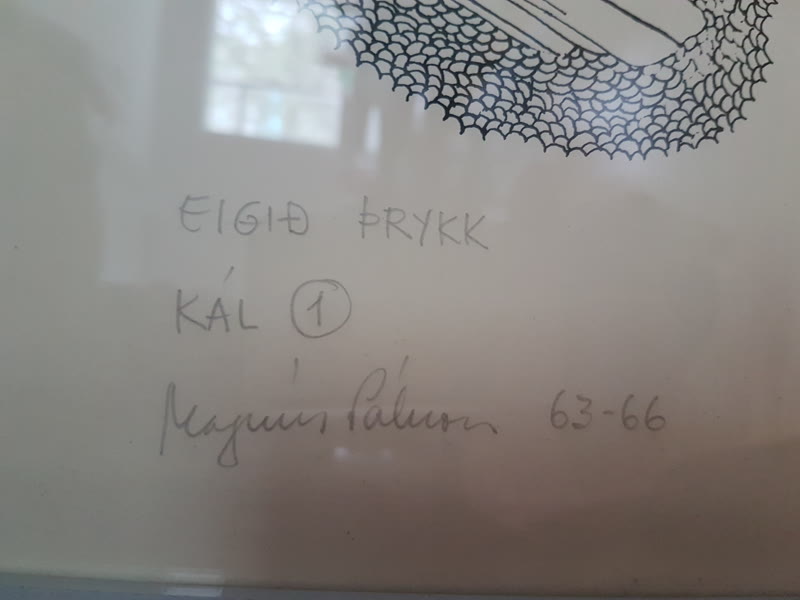 EIGIÐ ÞRYKK
KÁL 1
Magnús Pálsson 63-66